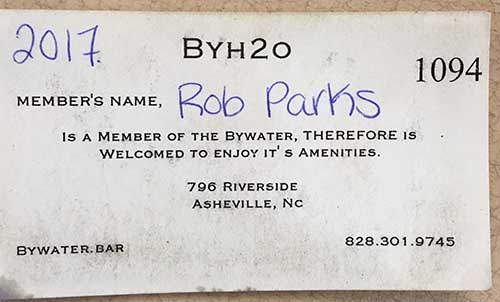 2017.
BYH2O
1094
MEMBER'S NAME, Rob Parks
IS A MEMBER OF THE BYWATER, THEREFORE IS
WELCOMED TO ENJOY IT'S AMENITIES.
796 RIVERSIDE
ASHEVILLE, NC
BYWATER.BAR
828.301.9745